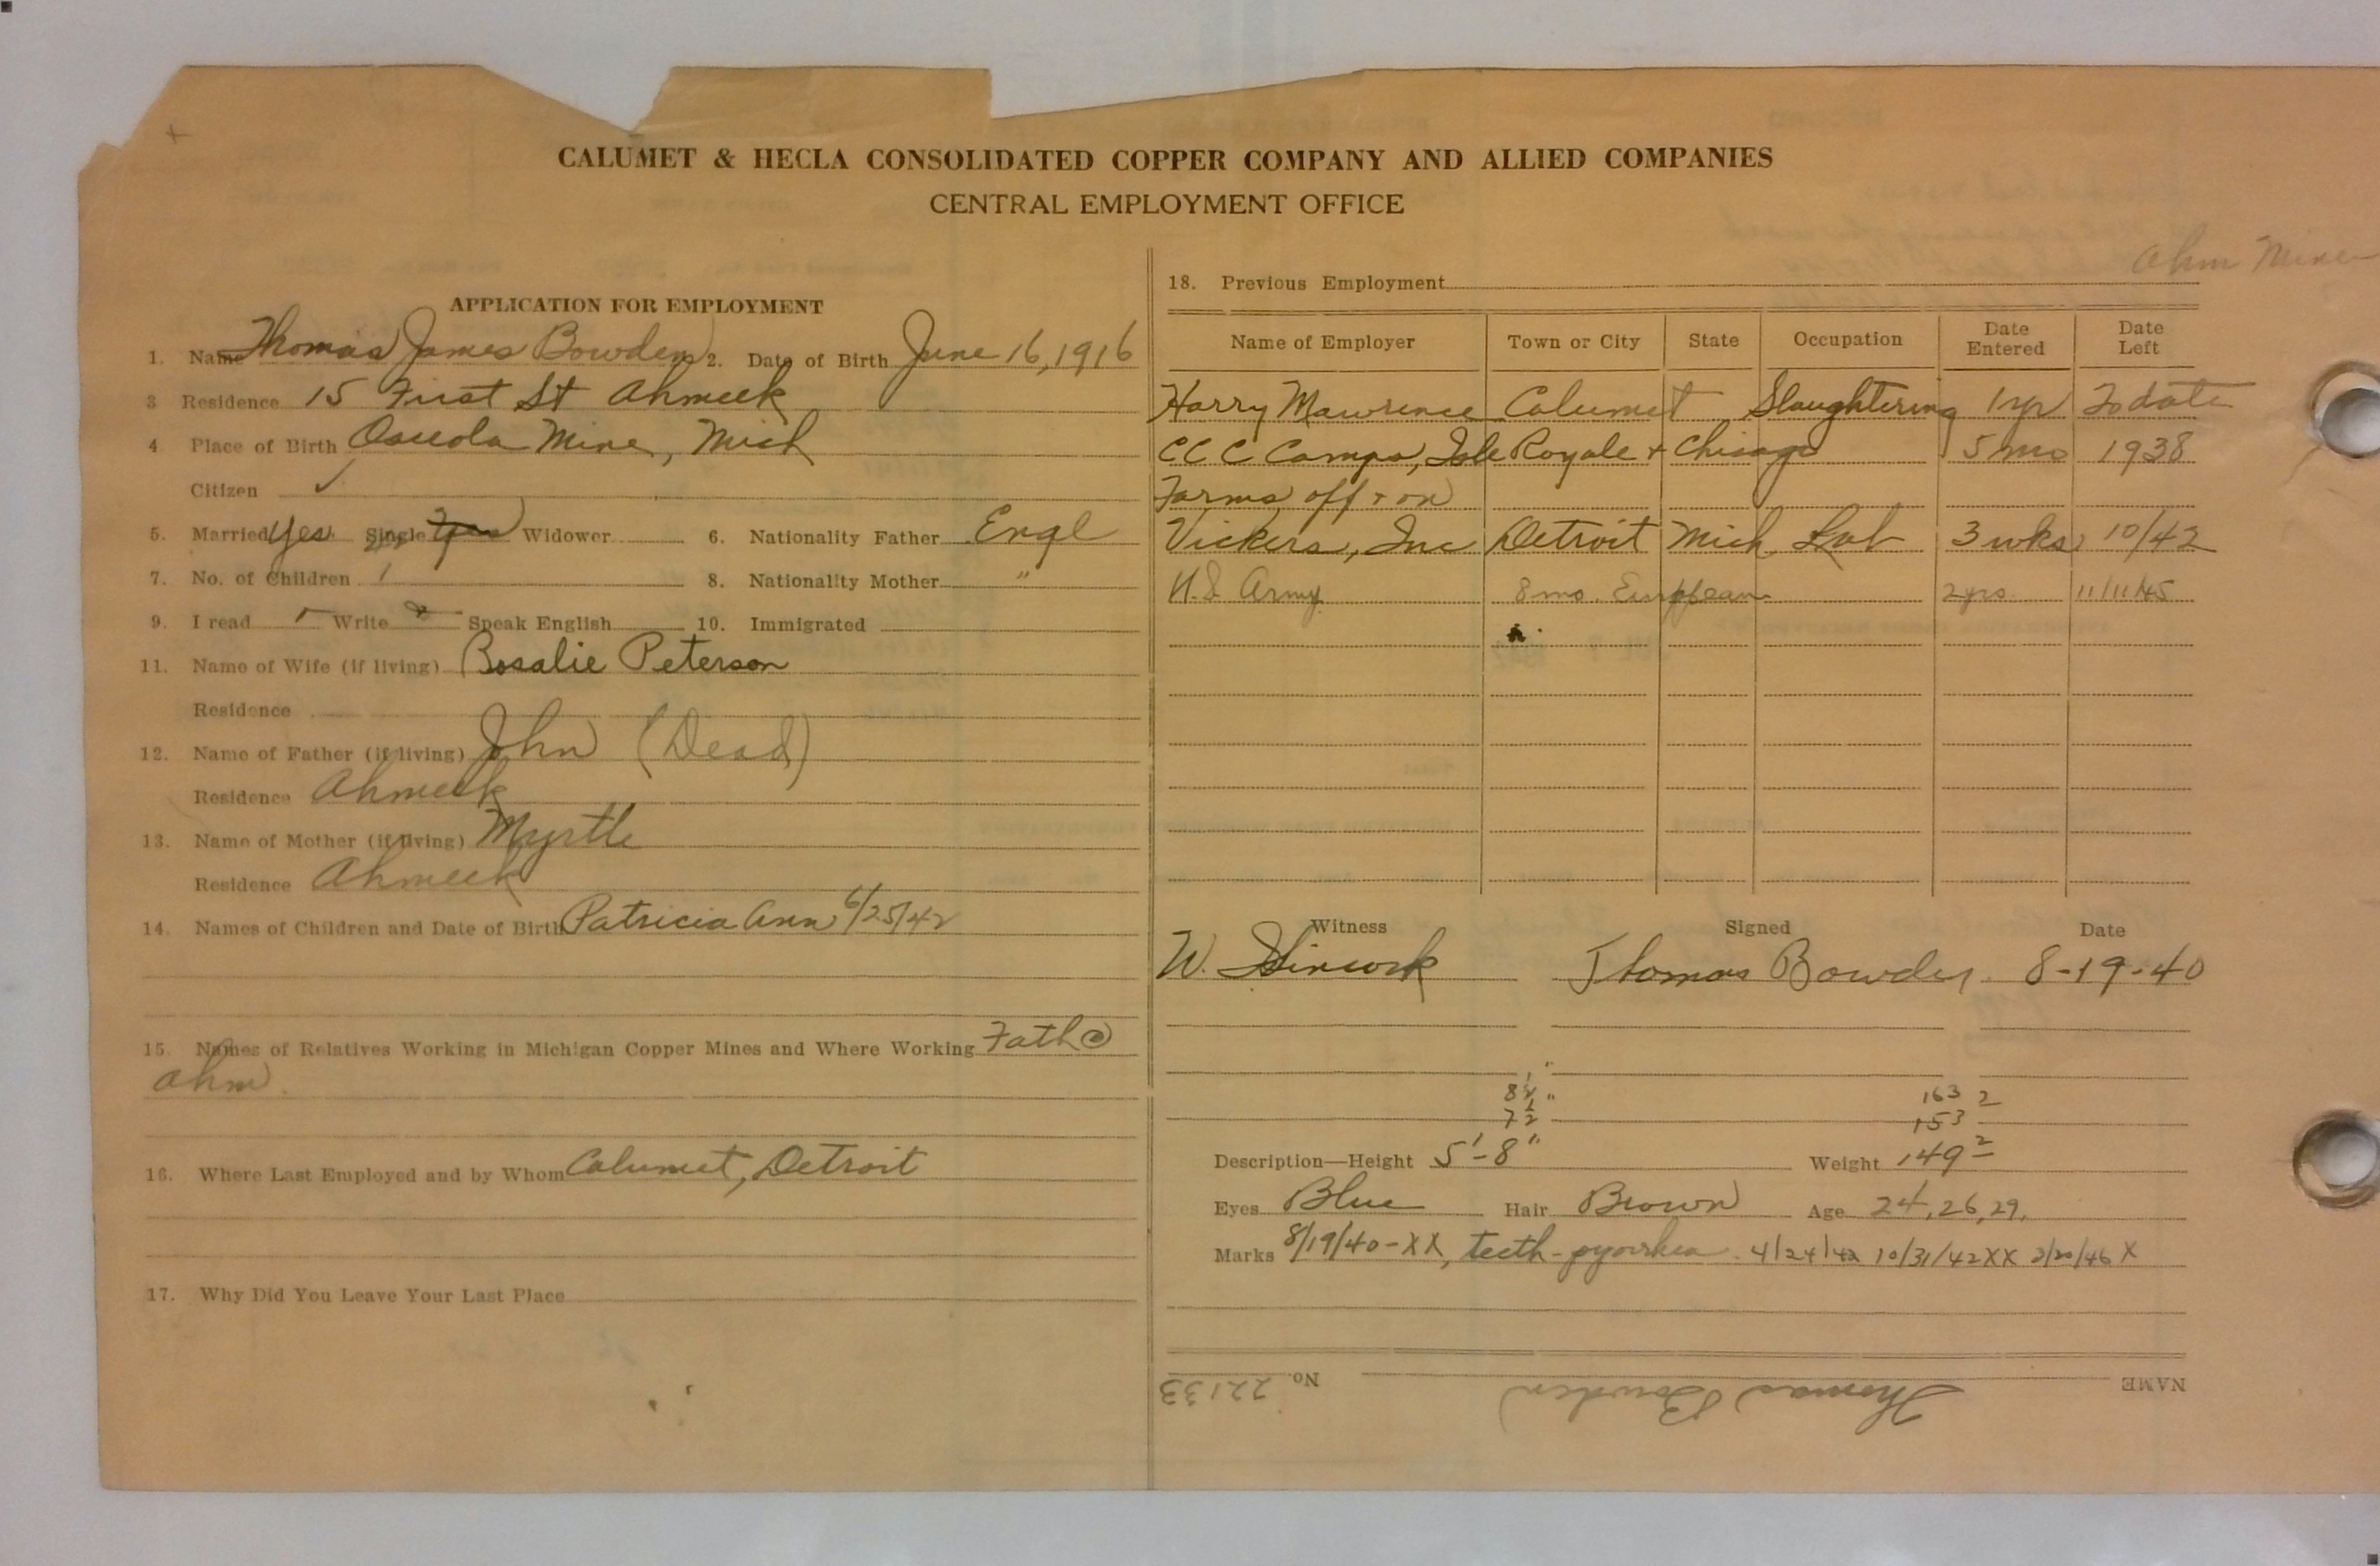 CALUMET & HECLA CONSOLIDATED COPPER COMPANY AND ALLIED COMPANIES
CENTRAL EMPLOYMENT OFFICE
APPLICATION FOR EMPLOYMENT
1. Name Thomas James Bowden 2. Date of Birth June 16, 1916
3 Residence 15 First St Ahmeek
4 Place of Birth Osceola Mine, Mich
Citizen ✓
5. Married Yes Single Widower 6. Nationality Father Engl
7. No. of Children 1 8. Nationality Mother "
9. I read Write Speak English 10. Immigrated
11. Name of Wife (if living) Rosalie Peterson
Residence
12. Name of Father (if living) John (Dead)
Residence Ahmeek
13. Name of Mother (if living) Myrtle
Residence Ahmeek
14. Names of Children and Date of Birth Patricia Ann 6/25/42
15. Names of Relatives Working in Michigan Copper Mines and Where Working Fath @
Ahm
16. Where Last Employed and by Whom Calumet, Detroit
17. Why Did You Leave Your Last Place
Ahm Mine
18. Previous Employment
Name of Employer Town or City State Occupation Date Entered Date Left
Harry Mawrence Calumet Slaughtering 1 yr To date
CCC Camps, Isle Royale + Chicago 5 mos 1938
Farms off + on
Vickers, Inc Detroit Mich Lab 3 wks 10/42
U.S. Army 8 mo. European 2 yrs 11/11/45
Witness Signed Date
W. Thomas Bowden 8-19-40
8 1/2" 163 2
7 1/2 153
Description—Height 5'-8" Weight 149 2
Eyes Blue Hair Brown Age 24, 26, 29,
Marks 8/19/40-XX, teeth-pyorrhea 4/24/42 10/31/42 XX 2/20/46 X
NAME Thomas Bowden No 22133